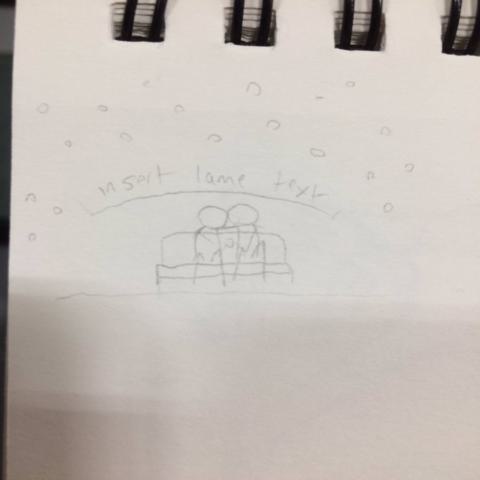 insert lame text